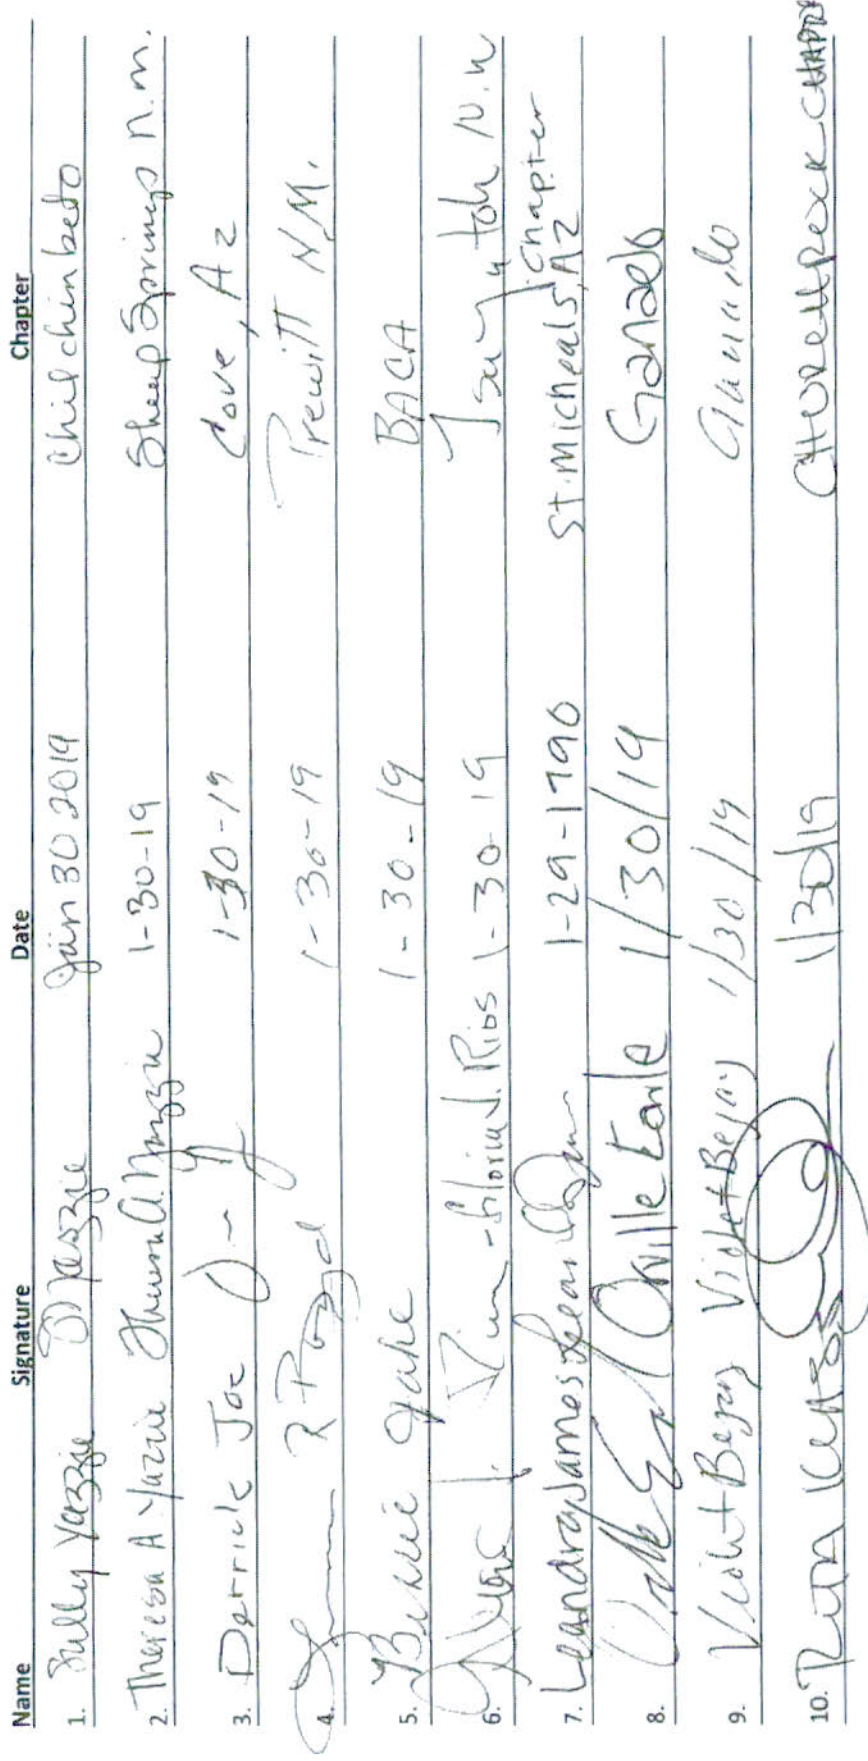 Name Signature Date Chapter
1. Sully Yazzie Yazzie Jan 30 2019 Chilchinbeto
2. Theresa A. Yazzie Theresa A. Yazzie 1-30-19 Sheep Springs n.m.
3. Derrick Joe 1-30-19 Cove, Az
4. 1-30-19 Prewitt N.M.
5. Jake 1-30-19 BACA
6. Gloria J. Rios 1-30-19
7. Leandra James 1-29-1990 St. Micheals, AZ Chapter
8. Orville Earle 1/30/19 Ganado
9. Violet Begay Violet Begay 1/30/19 Ganado
10. 1/30/19 CHURCHROCK CHAPTER